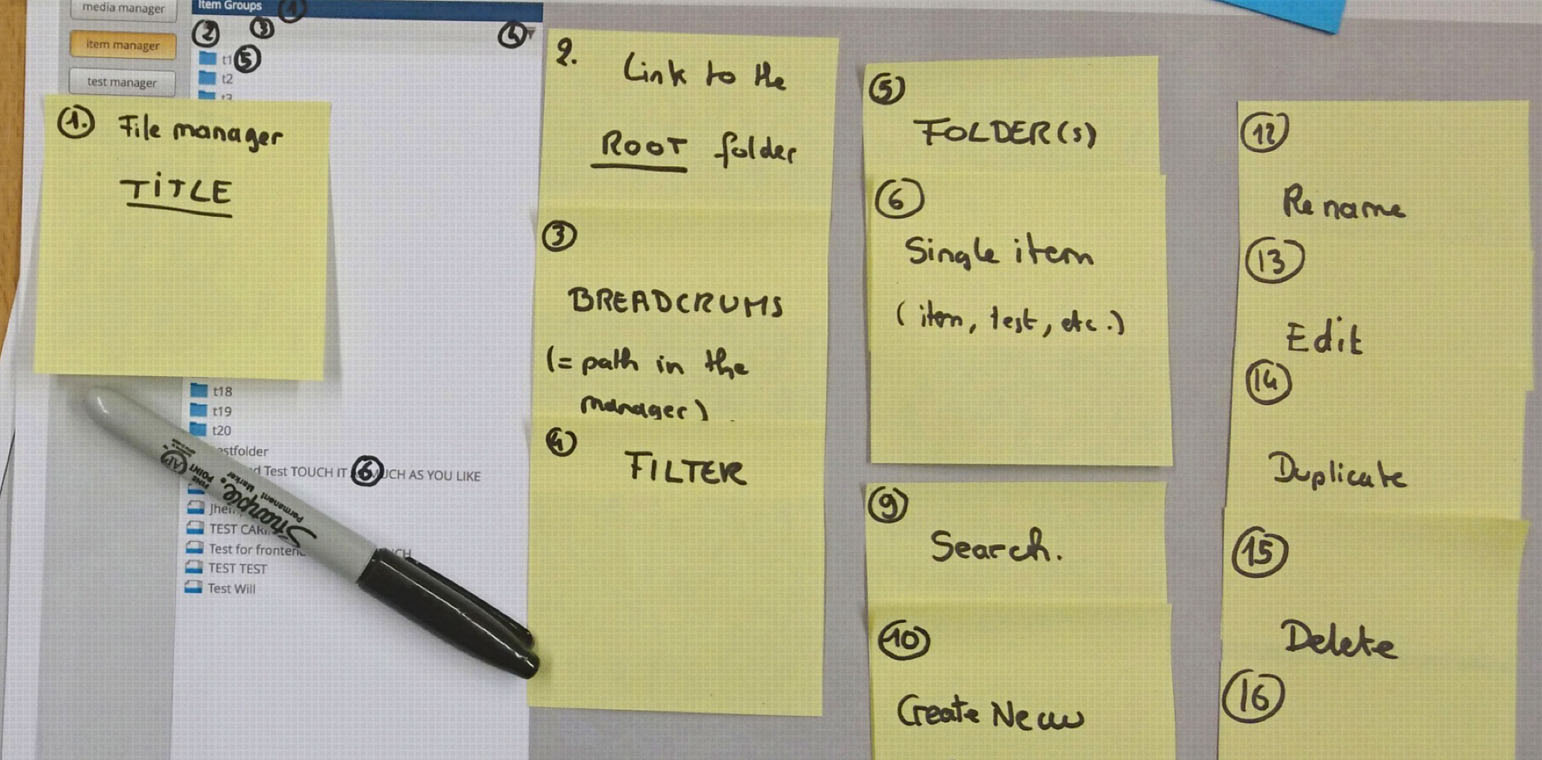 media manager
item manager
test manager
Item Groups 1
2 3 4
t1 5
t2
t3
1. File manager
TITLE
t18
t19
t20
estfolder
d Test TOUCH IT 6 UCH AS YOU LIKE
TEST CAR
Test for fronten CH
TEST TEST
Test Will
Sharpie.
Permanent Marker
FINE POINT
AP
2. Link to the
ROOT folder
3
BREADCRUMS
(= path in the
manager)
4
FILTER
5
FOLDER(s)
6
Single item
(item, test, etc.)
9
Search.
10
Create New
12
Rename
13
Edit
14
Duplicate
15
Delete
16